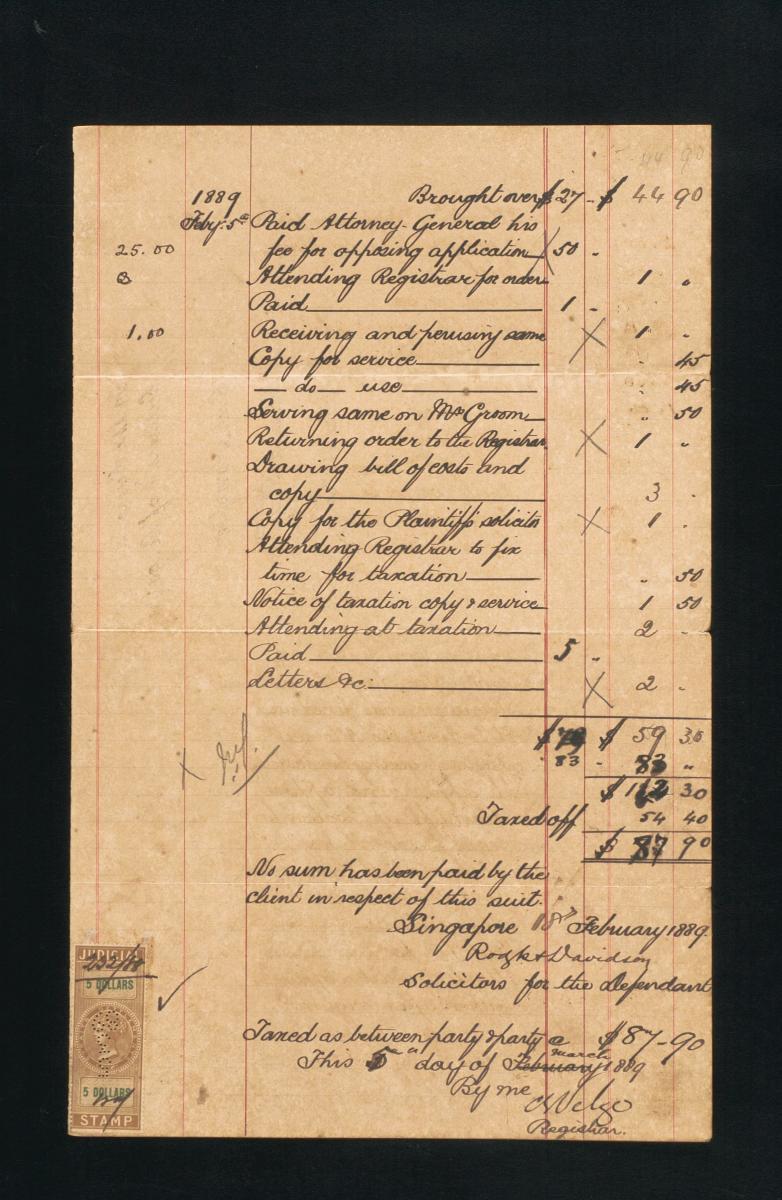 44 90
1889 Brought over $27 - $ 44 90
Feby. 5th Paid Attorney-General his
25.00 fee for opposing application 50 "
Attending Registrar for order 1 "
Paid 1 -
1.00 Receiving and perusing same X 1 -
Copy for service " 45
— do — use " 45
Serving same on Mr Groom " 50
Returning order to the Registrar X 1 "
Drawing bill of costs and
copy 3 -
Copy for the Plaintiff's solicitor X 1 -
Attending Registrar to fix
time for taxation " 50
Notice of taxation copy & service 1 50
Attending at taxation 2 -
Paid 5 "
Letters &c: X 2 -
$ $ 59 30
X 83 - 83 "
$ 30
Taxed off 54 40
$ 87 90
No sum has been paid by the
client in respect of this suit.
Singapore 18th February 1889.
Rodyk & Davidson
Solicitors for the Defendant
JUDICIAL
5 DOLLARS
5 DOLLARS
STAMP
Taxed as between party & party @ $87-90
This 5th day of February march 1889
By me
Registrar.